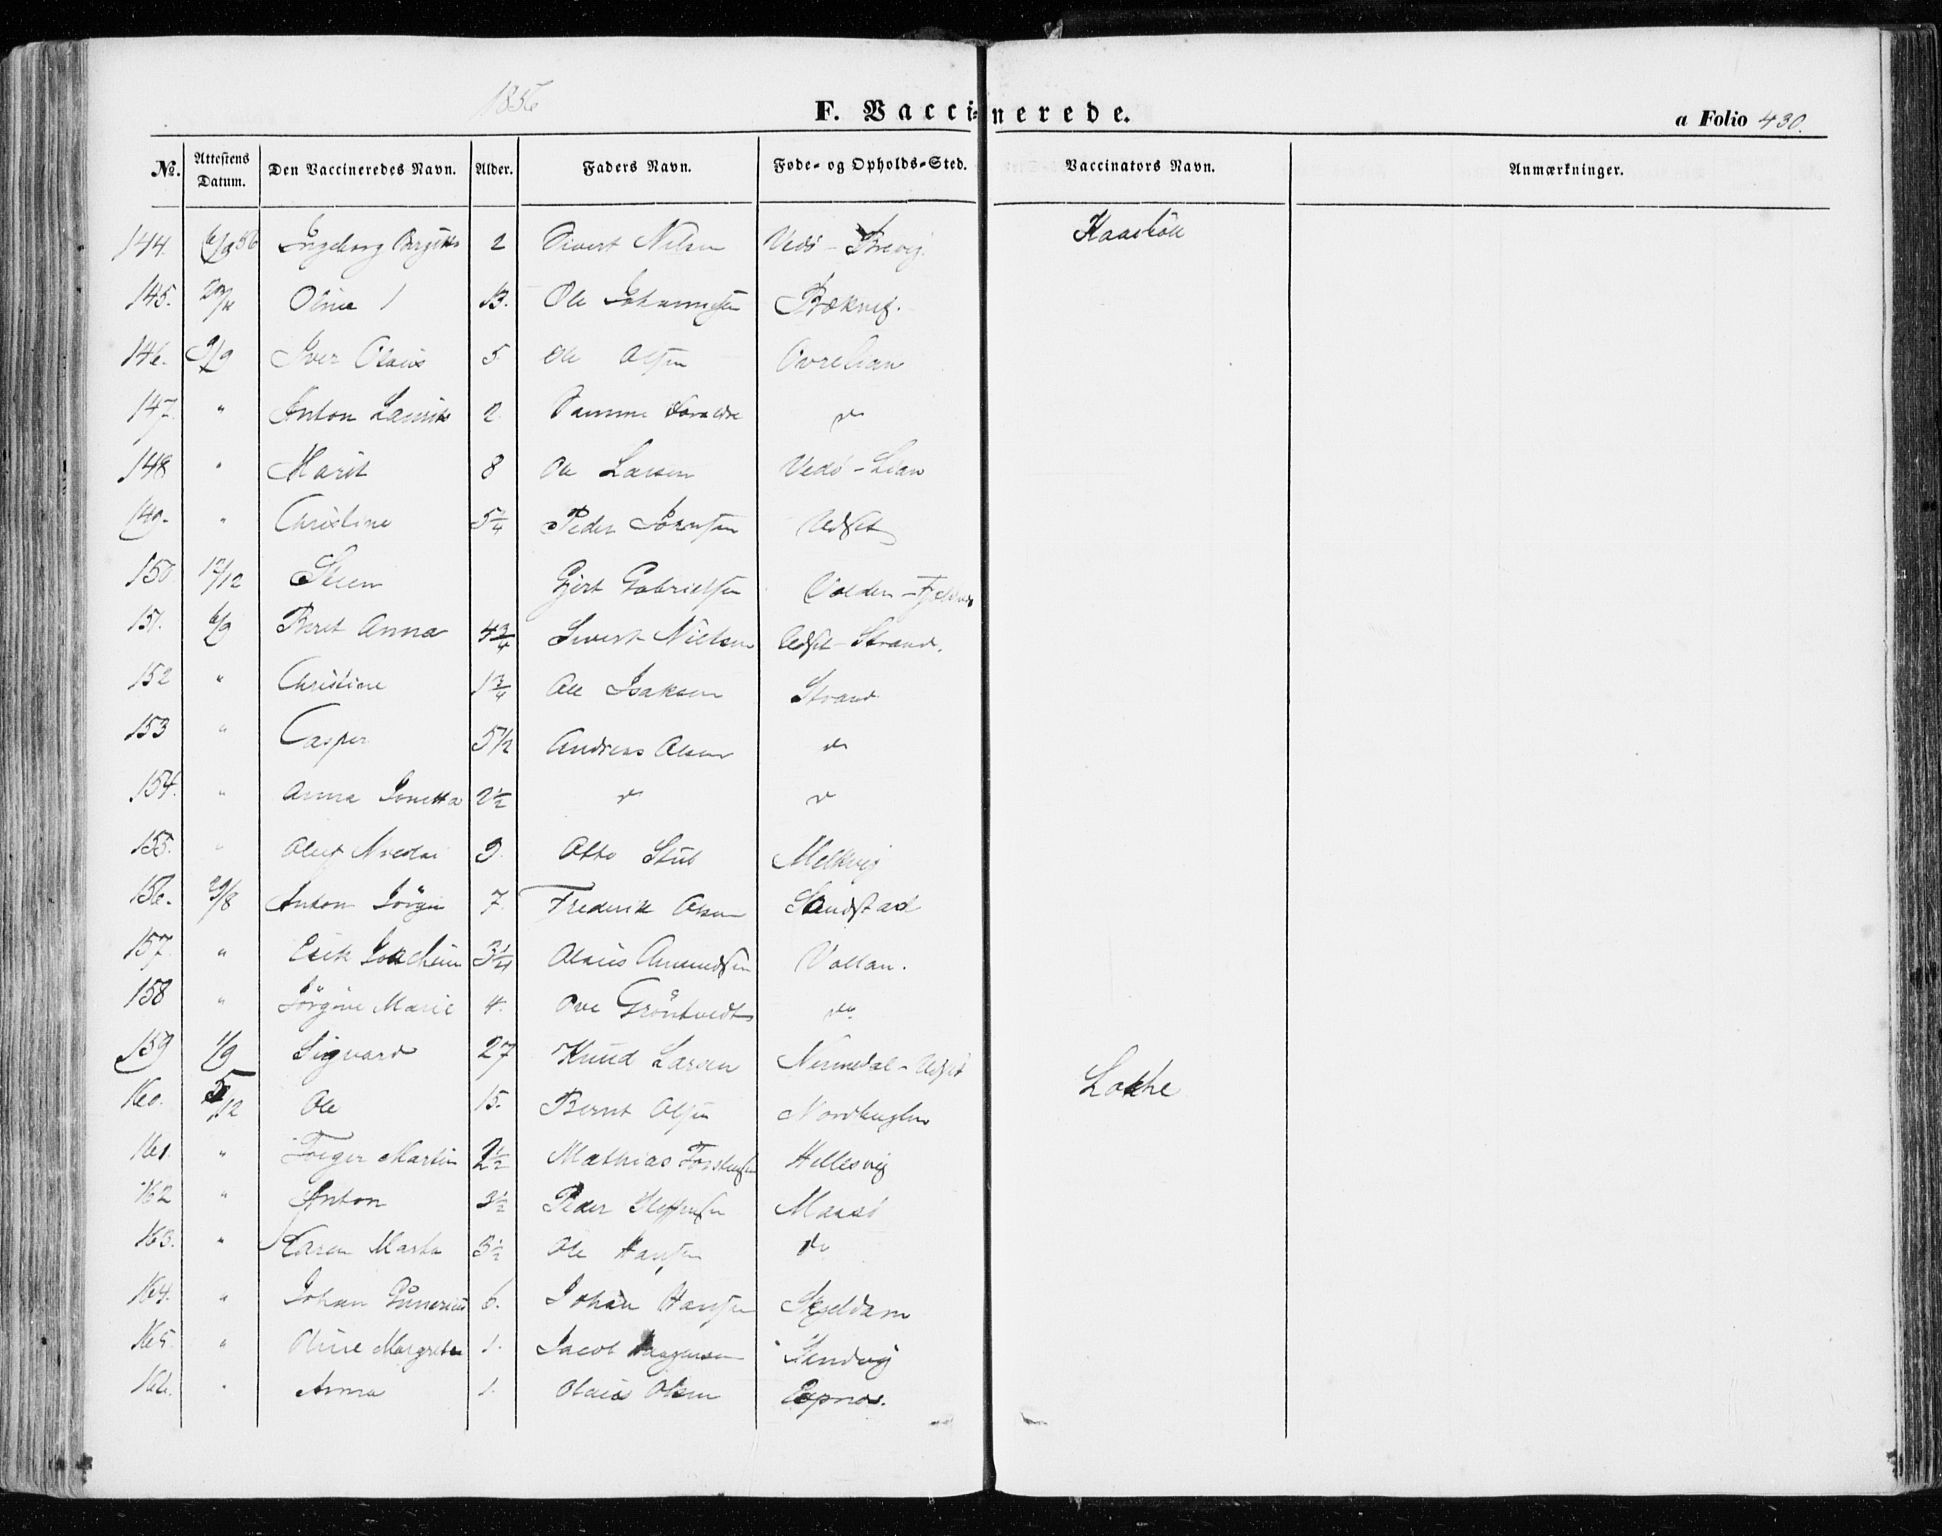 1856
F. Vaccinerede.
a Folio 430.
No. Attestens Datum. Den Vaccineredes Navn. Alder. Faders Navn. Føde- og Opholds-Sted. Vaccinators Navn. Anmærkninger.
144. 6/9 56 Ingeborg Birgitte 2 Sivert Nilsen Vedö - Kaasböll
145. Oline 1 13. Ole Johannesen Bækvig.
146. 9/9 Iver Olaus 5 Ole Olsen
147. " Anton Laurits 2 Samme Foreldre do
148 " Marit 8 Ole Larsen Vedö - Lian
149. " Christine 5 3/4 Peder Jörnsen Udset
150. 17/12 Steen Gjert Gabrielsen Volden -
151. 6/9 Beret Anna 4 3/4 Sivert Nielsen Udset - Strand.
152 " Christine 1 3/4 Ole Isaksen Strand
153 " Casper 5 1/2 Andreas Olsen do
154. " Anna Jonetta 2 1/2 do do
155. " Oluf Nicolai 9. Otto Stub Melkvig
156. 29/8 Anton Jörgen 7 Frederik Olsen Sandstad
157. " Erik Joachim 3 1/4 Olaus Amundsen Vollan.
158 " Jörgine Marie 4. Ove Gröntvedt do
159 1/9 Sigvard 27 Knud Larsen - Udset
160. 5/12 Ole 15. Bernt Olsen Lokke
161. " Martin 2 1/2 Mathias Hellesvig
162 " Anton 3 1/2 Peder Steffensen Maasö
163. " Karen Marta 3 1/2 Ole Hansen do
164. " Johan Gunerius 6. Johan Hansen Skjeldam
165. " Oline Margrete 1. Jacob Sandvig
166. " Anna 1. Olaus Olsen Espnes.